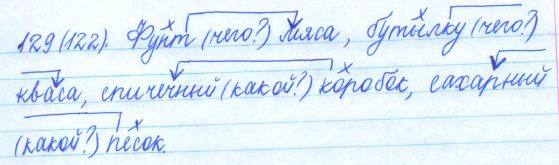 129(122). Фунт (чего?) мяса, бутылку (чего?)
кваса, спичечный (какой?) коробок, сахарный
(какой?) песок.